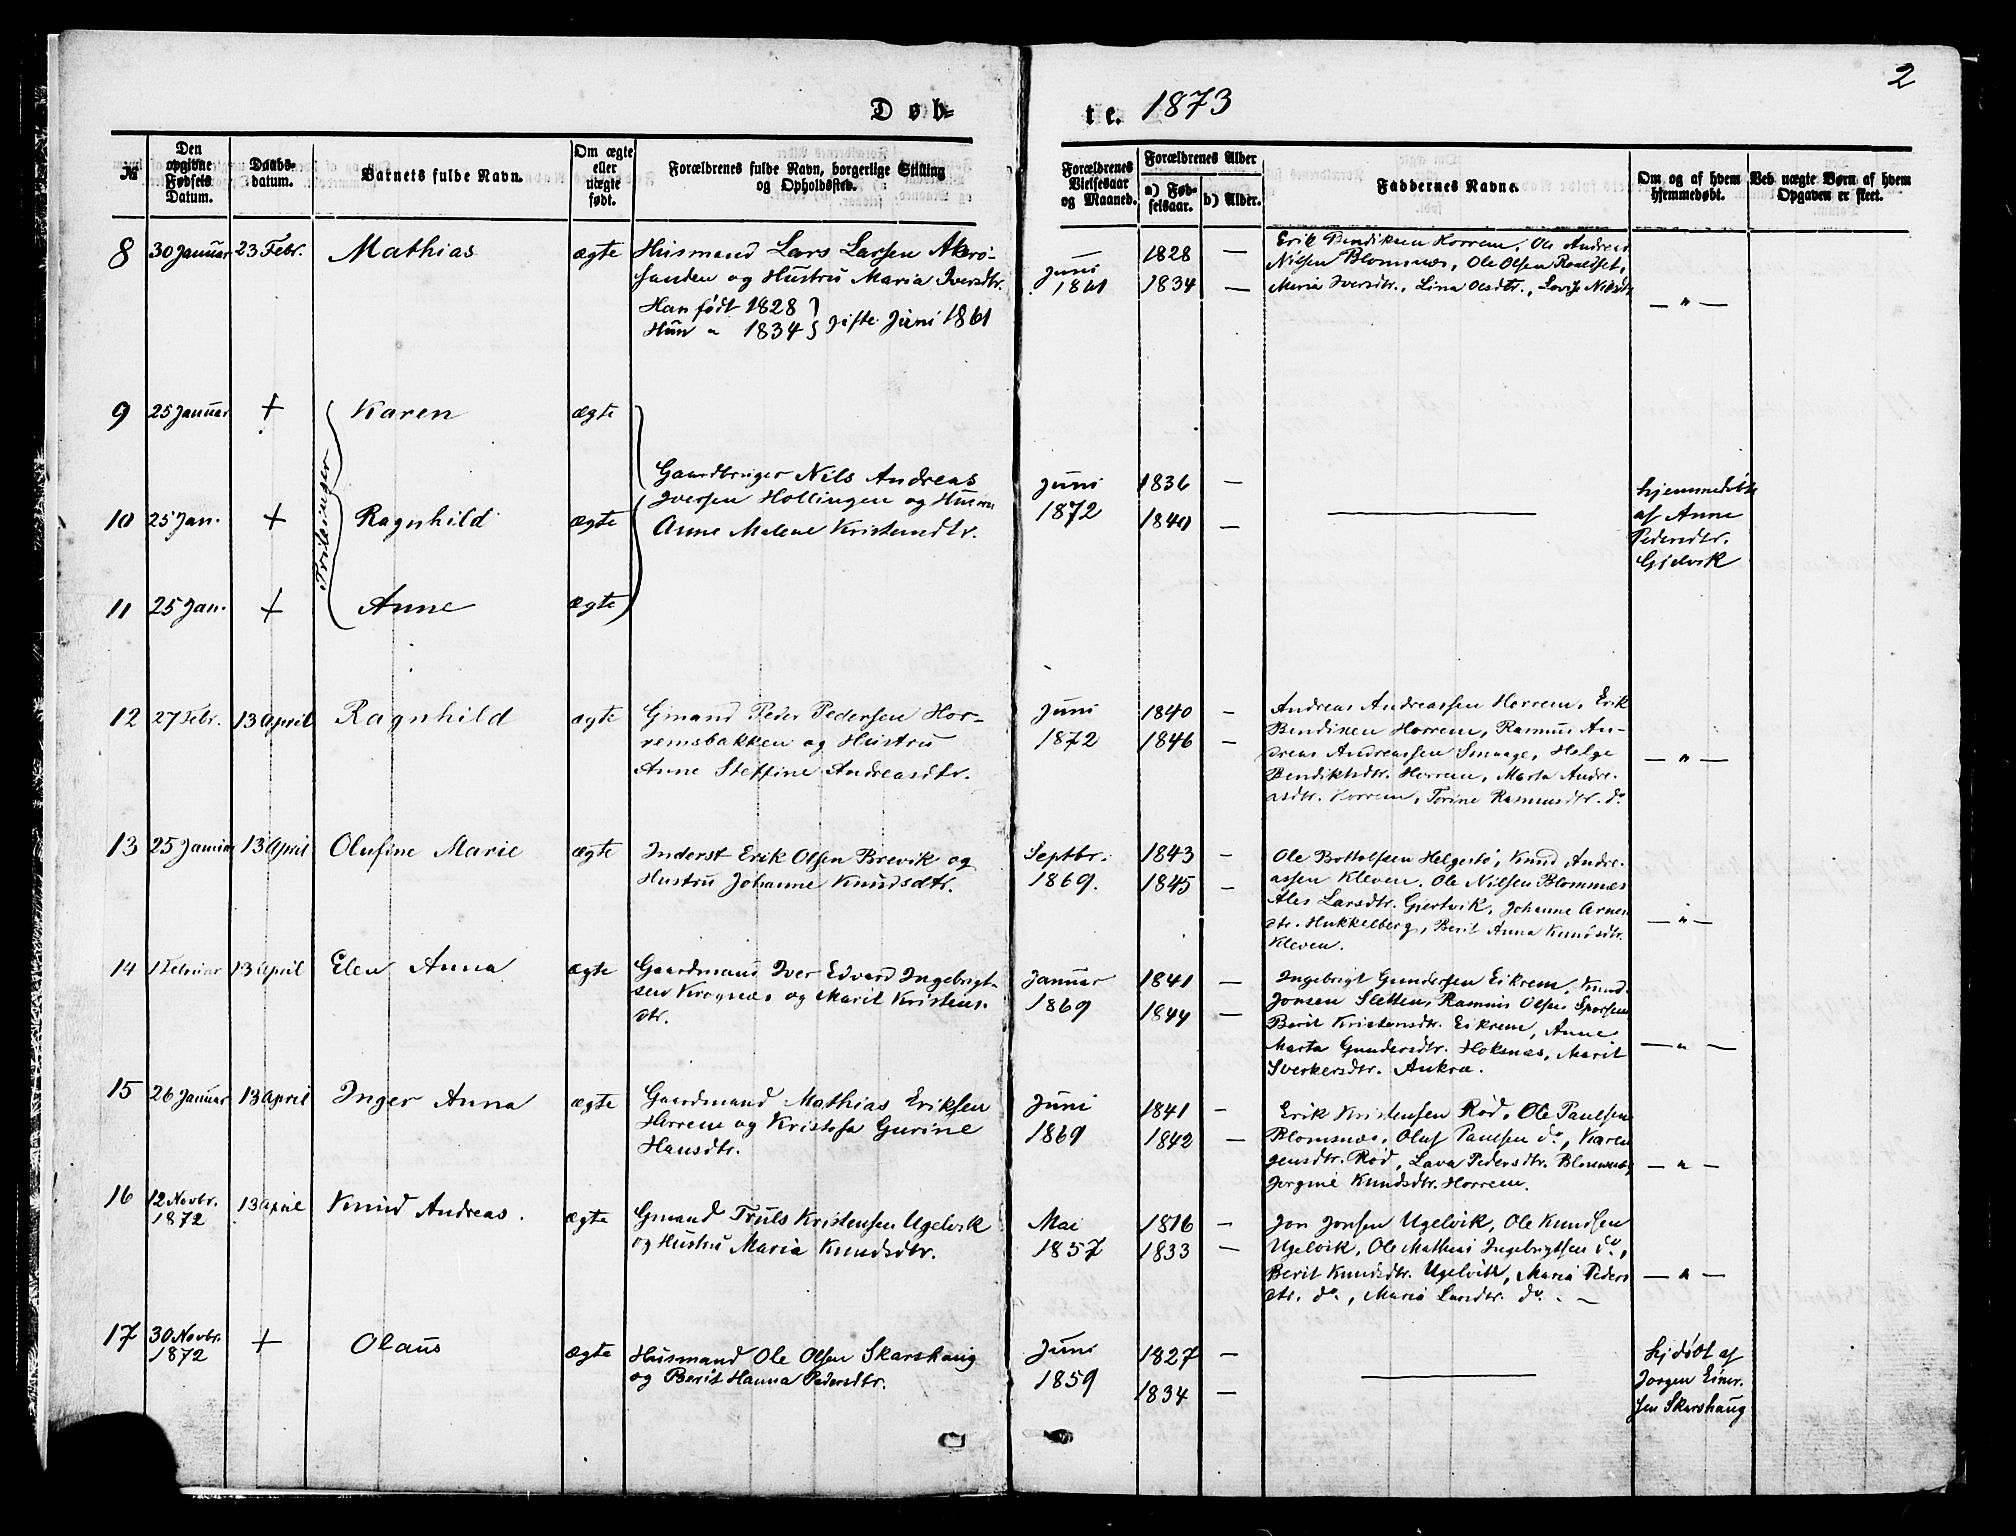 2
Døb=
te. 1873
№
Den opgivne Fødsels Datum.
Daabs-datum.
Barnets fulde Navn.
Om ægte eller uægte født.
Forældrenes fulde Navn, borgerlige Stilling og Opholdssted.
Forældrenes Vielsesaar og Maaned.
Forældrenes Alder
a) Fødselsaar.
b) Alder.
Faddernes Navne.
Om og af hvem hjemmedøbt.
Ved uægte Børn af hvem Opgaven er skeet.
8 30 Januar 23 Febr. Mathias ægte
Husmand Lars Larsen Akerø-
sanden og Hustru Maria Iversdtr.
Han født 1828 }
Hun " 1834 } gifte Juni 1861
Juni
1861
1828 —
1834 —
Erik Bendiksen Horrem, Ole Andreas
Nilsen Blomsnæs, Ole Olsen Roaldset,
Maria Iversdtr., Lina Olsdtr., Lovise Nilsdtr
— " —
9 25 Januar + Karen ægte
10 25 Jan. + Ragnhild ægte
11 25 Jan. + Anne ægte
Trillinger
Gaardbruger Nils Andreas
Iversen Hollingen og Hustru
Anne Malene Kristensdtr.
Juni
1872
1836 —
1840 —
hjemmedøbt
af Anne
Pedersdtr.
Gjelvik
12 27 Febr. 13 April Ragnhild ægte
Gmand Peder Pedersen Hor-
remsbakken og Hustru
Anne Steffine Andreasdtr.
Juni
1872
1840 —
1846 —
Andreas Andreassen Horrem, Erik
Bendiksen Horrem, Rasmus An-
dreas Andreassen Smaage, Helge
Bendiktsdtr. Horrem, Marta Andre-
asdtr. Horrem, Torine Rasmusdtr. do.
— " —
13 25 Januar 13 April Olufine Marie ægte
Inderst Erik Olsen Brevik og
Hustru Johanne Knudsdtr.
Septbr.
1869.
1843 —
1845 —
Ole Bottolfsen Helgestø, Knud Andre-
assen Kleven, Ole Nilsen Blomsnæs
Ales Larsdtr. Gjertvik, Johanne Arnes
dtr. Hukkelberg, Berit Anna Knudsdtr.
Kleven.
— " —
14 1 Februar 13 April Elen Anna ægte
Gaardmand Iver Edvard Ingebrigt-
sen Krognæs og Marit Kristens-
dtr.
Januar
1869
1841 —
1844 —
Ingebrigt Gundersen Eikrem, Knud
Jonsen Sletten, Rasmus Olsen
Berit Kristensdtr. Eikrem, Anne
Marta Gundersdtr. Hoksnæs, Marit
Sverkersdtr. Aukra.
— " —
15 26 Januar 13 April Inger Anna ægte
Gaardmand Mathias Eriksen
Horrem og Kristofa Gurine
Hansdtr.
Juni
1869
1841 —
1842 —
Erik Kristensen Rød, Ole Paulsen
Blomsnæs, Oluf Paulsen do., Karen
Jensdtr. Rød, Lava Pedersdtr. Blomsnæs,
Jorgine Knudsdtr. Horrem.
— " —
16 12 Novbr. 1872 13 April Knud Andreas. ægte
Gmand Truls Kristensen Ugelvik
og Hustru Maria Knudsdtr.
Mai
1857
1816 —
1833 —
Jon Jonsen Ugelvik, Ole Knudsen
Ugelvik, Ole Mathias Ingebrigtsen do.,
Berit Knudsdtr. Ugelvik, Maria Peders
dtr. do., Maria Larsdtr. do. —
— " —
17 30 Novbr. 1872 + Olaus ægte
Husmand Ole Olsen Skarshaug
og Berit Hanna Pedersdtr.
Juni
1859
1827 —
1834 —
hjdøbt af
Jørgen Einer-
sen Skarshaug